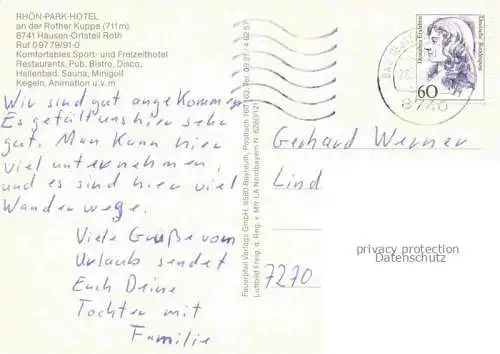 RHÖN-PARK-HOTEL
an der Rother Kuppe (711 m)
8741 Hausen-Ortsteil Roth
Ruf 0 97 79/91-0
Komfortables Sport- und Freizeithotel
Restaurants, Pub, Bistro, Disco,
Hallenbad, Sauna, Minigolf
Kegeln, Animation u.v.m
Wir sind gut angekommen
Es gefällt uns hier sehr
gut. Man kann hier
viel unternehmen,
und es sind hier viel
Wanderwege.
Viele Grüße vom
Urlaub sendet
Euch Deine
Tochter mit
Familie
Fauerpteil Verlags GmbH, 8580 Bayreuth, Postfach 100 163, Tel. 09 21 / 4 62 57
Luftbild Freig. d. Reg. v. Mfr. LA Nordbayern N: 6280/121
60
8740
Gerhard Werner
Lind
7270
privacy protection
Datenschutz